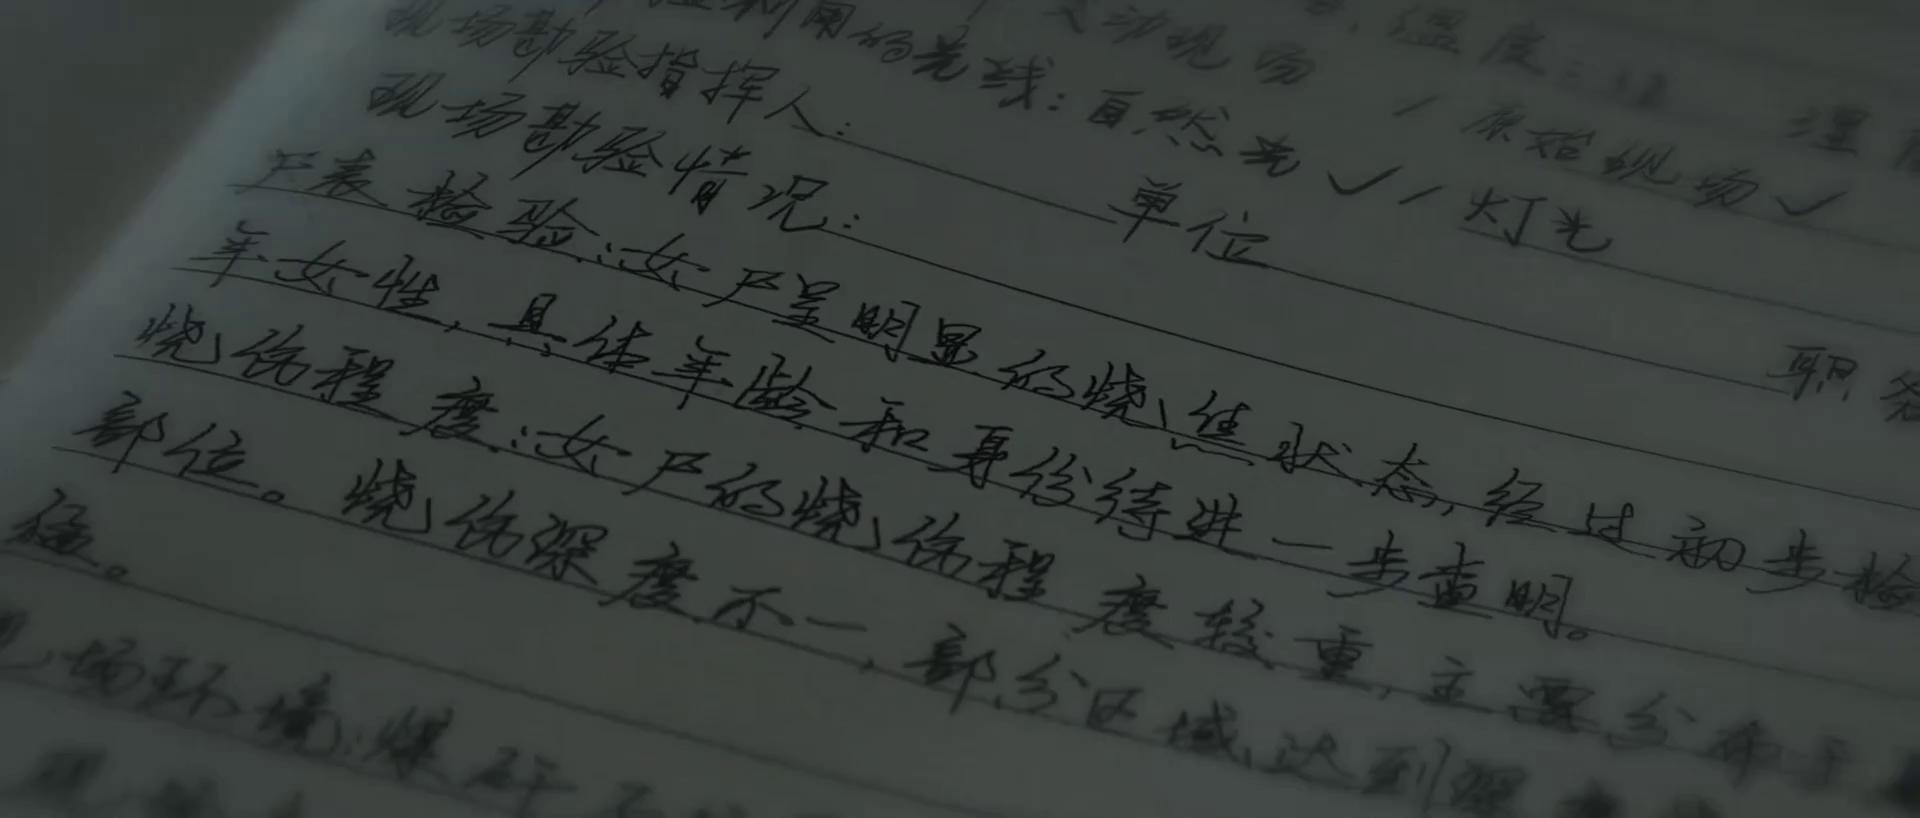 变动现场 / 原始现场✓
利用的光线：自然光✓ / 灯光
现场勘验指挥人： 单位 职务
现场勘验情况：
尸表检验：女尸呈明显的烧焦状态，经过初步检
年女性，具体年龄和身份待进一步查明。
烧伤程度：女尸的烧伤程度较重，主要分布于
部位。烧伤深度不一，部分区域达到深
场环境：煤矸